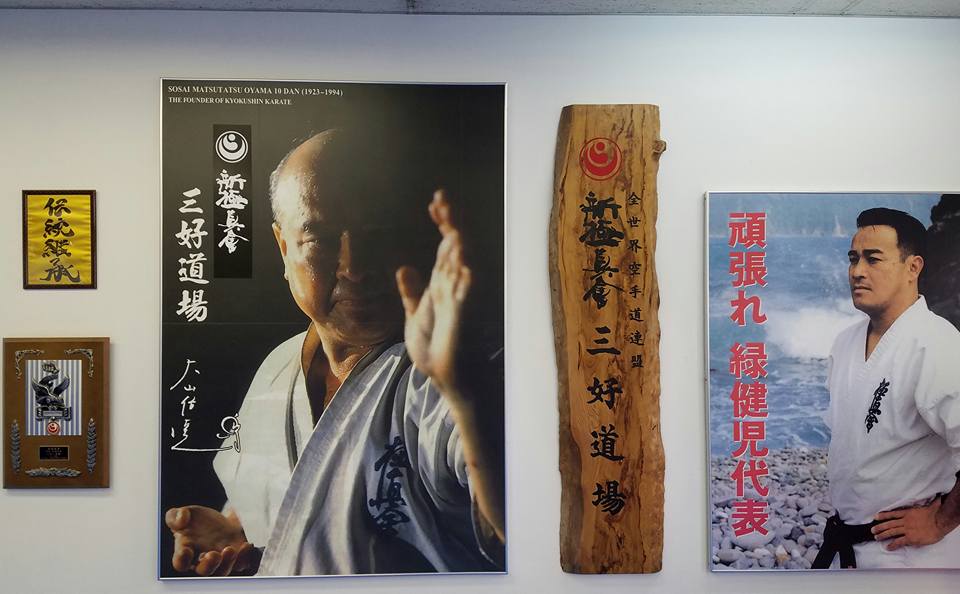 伝統継承
SOSAI MATSUTATSU OYAMA 10 DAN (1923~1994)
THE FOUNDER OF KYOKUSHIN KARATE
新極真會
三好道場
大山倍達
極真會
全世界空手道連盟
新極真會 三好道場
頑張れ 緑健児代表
極真會